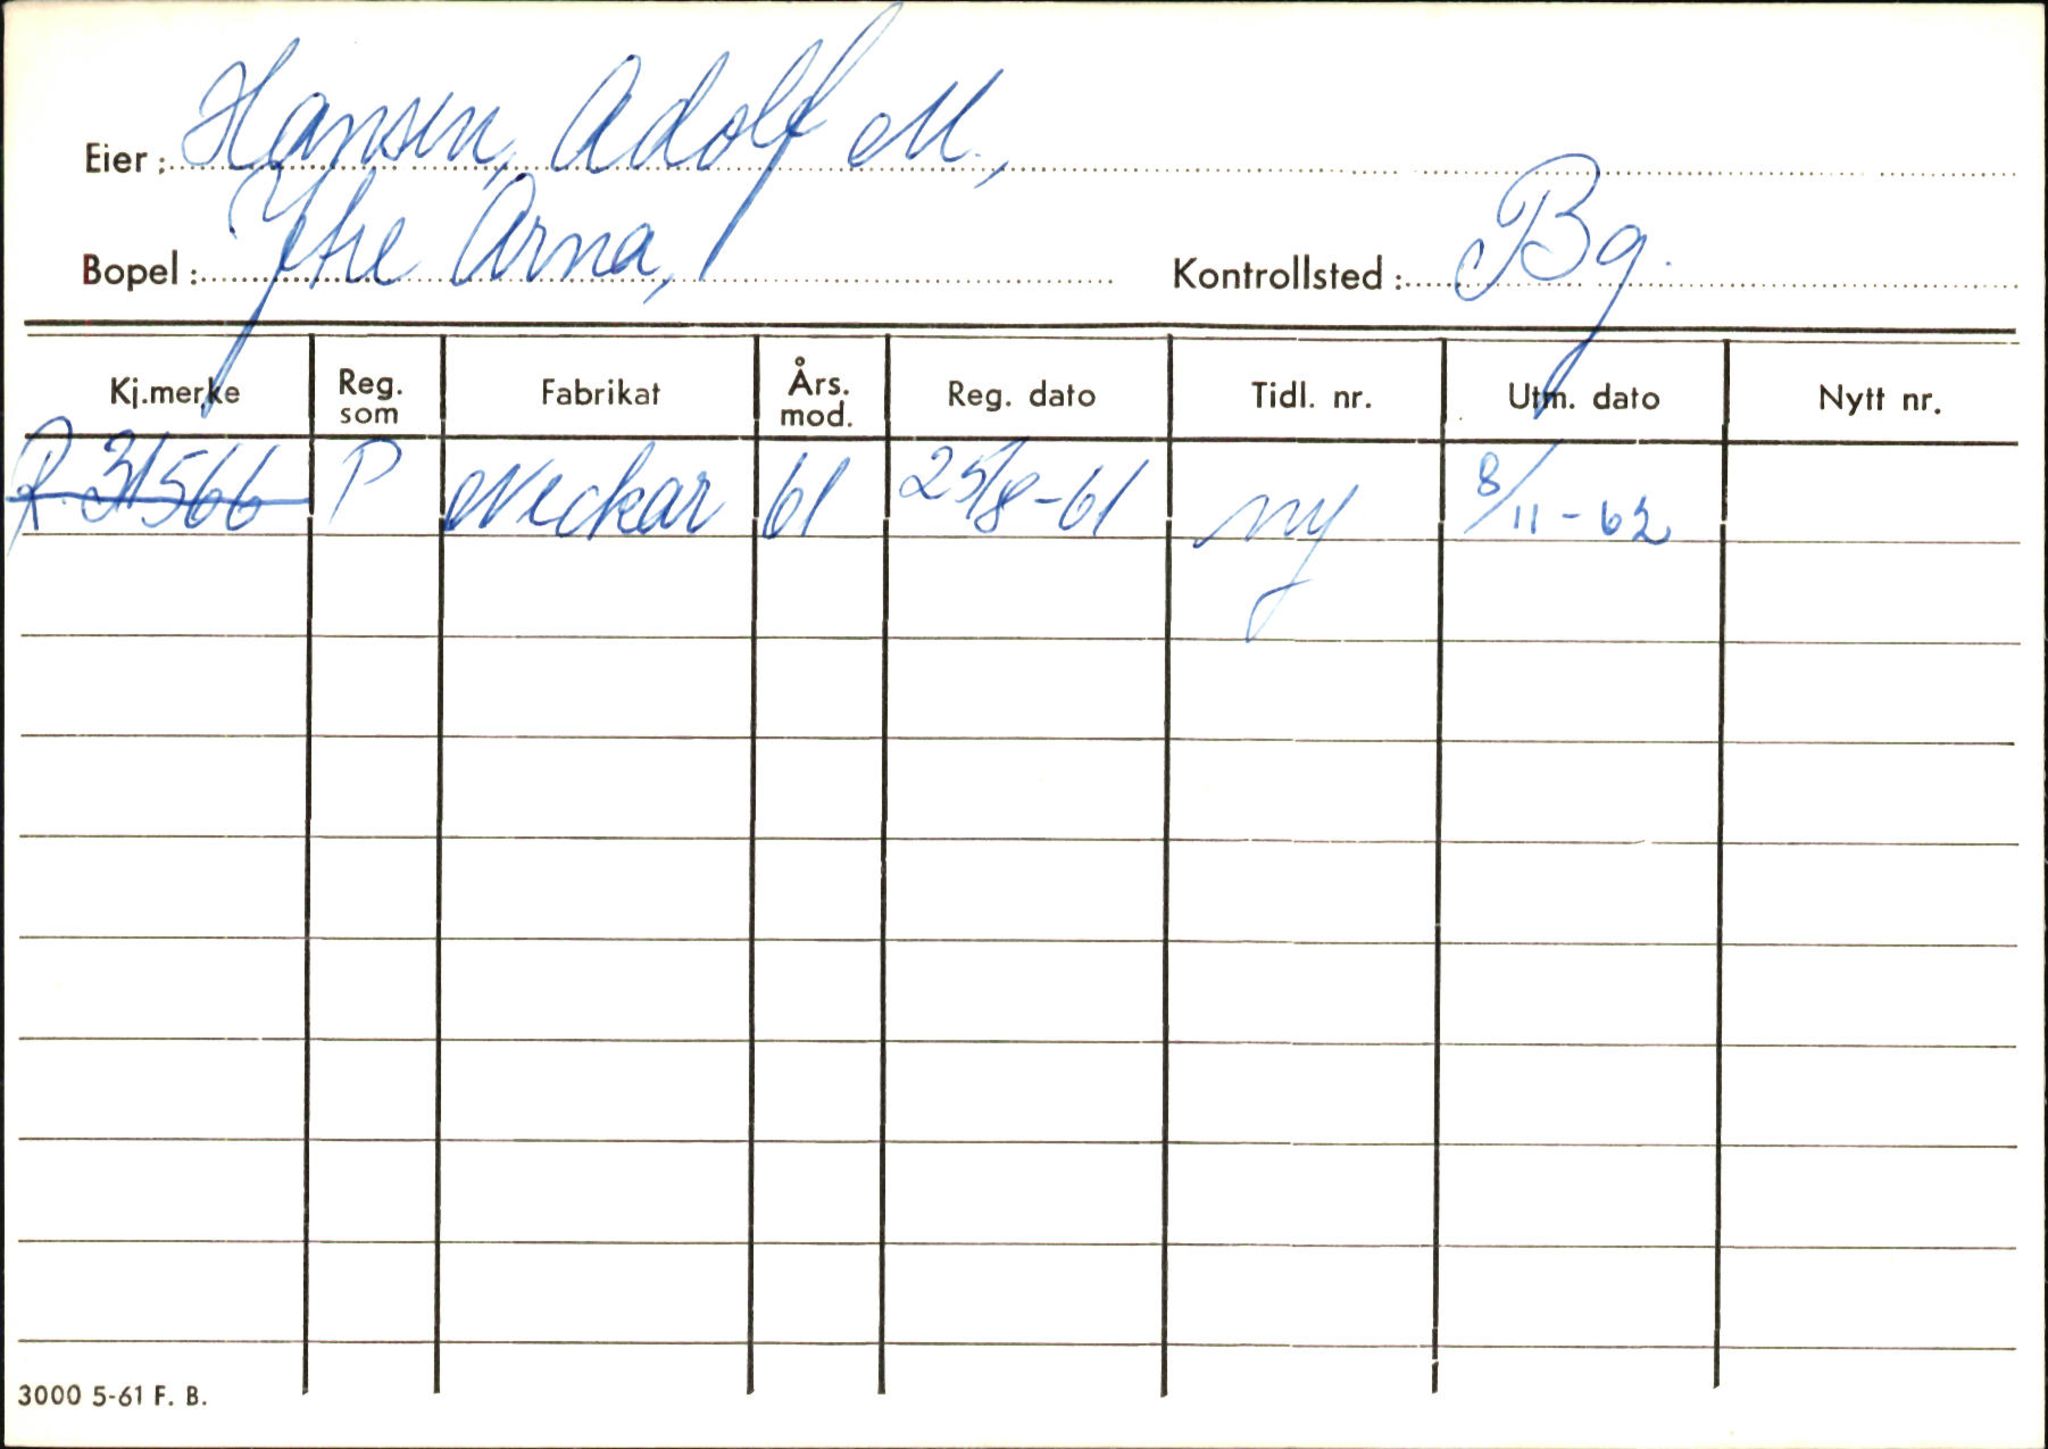 Eier: Hansen, Adolf M.,
Bopel: Ytre Arna, Kontrollsted: Bg.
Kj.merke Reg. som Fabrikat Års. mod. Reg. dato Tidl. nr. Utm. dato Nytt nr.
R. 31566 P Neckar 61 25/8-61 ny 8/11-62
3000 5-61 F. B.